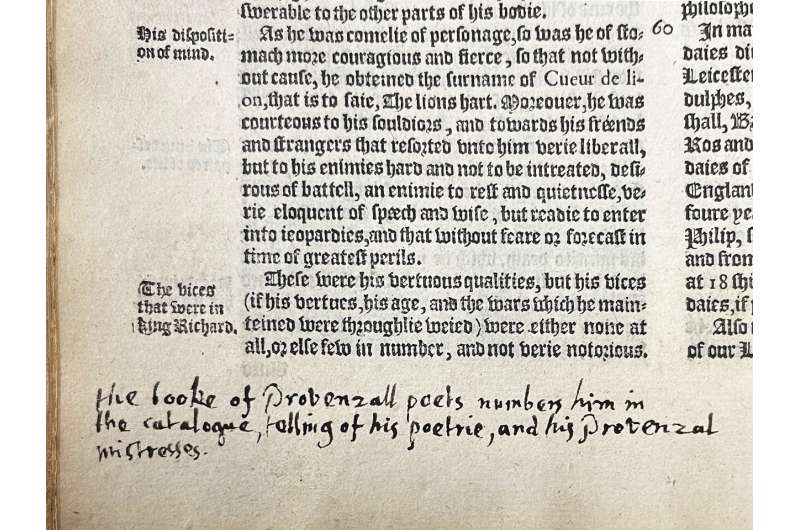 His dispositi-
on of mind.
The vices
that were in
king Richard.
swerable to the other parts of his bodie.
As he was comelie of personage, so was he of sto-
mach more couragious and fierce, so that not with-
out cause, he obteined the surname of Cueur de li-
on, that is to saie, The lions hart. Moreouer, he was
courteous to his souldiors, and towards his fréends
and strangers that resorted vnto him verie liberall,
but to his enimies hard and not to be intreated, desi-
rous of battell, an enimie to rest and quietnesse, ve-
rie eloquent of spéech and wise, but readie to enter
into ieopardies, and that without feare or forecast in
time of greatest perils.
These were his vertuous qualities, but his vices
(if his vertues, his age, and the wars which he main-
teined were throughlie weied) were either none at
all, or else few in number, and not verie notorious.
60
philosophe
In ma
daies di
Leicester
dulphes,
shall, Ba
Ros and
daies of
England
foure ye
Philip, s
and from
at 18 shi
daies, if p
Also
of our L
the booke of Provenzall poets numbers him in
the catalogue, telling of his poetrie, and his Provenzal
mistresses.